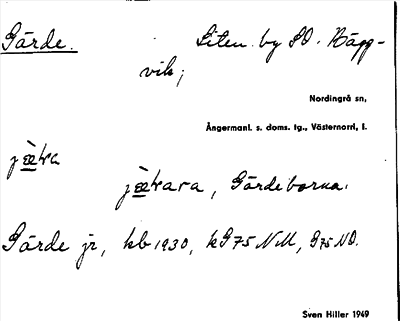 Gärde. Liten by SO. Hägg-
vik;
Nordingrå sn,
Ångermanl. s. doms. lg., Västernorrl. l.
jæ̀ɐra
jæ̀ɐrara, Gärdeborna.
Gärde jr, kb 1930, kG75 NM, G75 NO.
Sven Hiller 1949